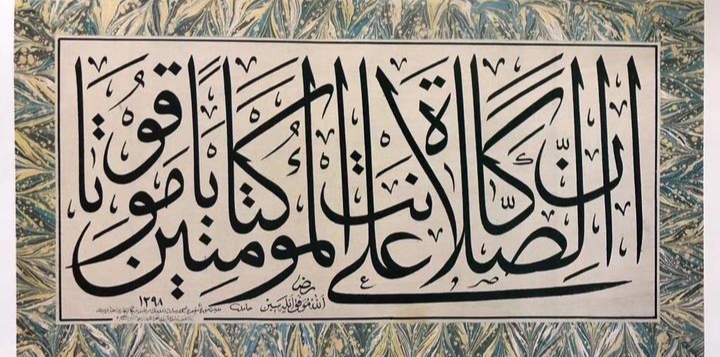 انَّ الصَّلاة كانت على المؤمنين كتابًا موقوتا
١٢٩٨